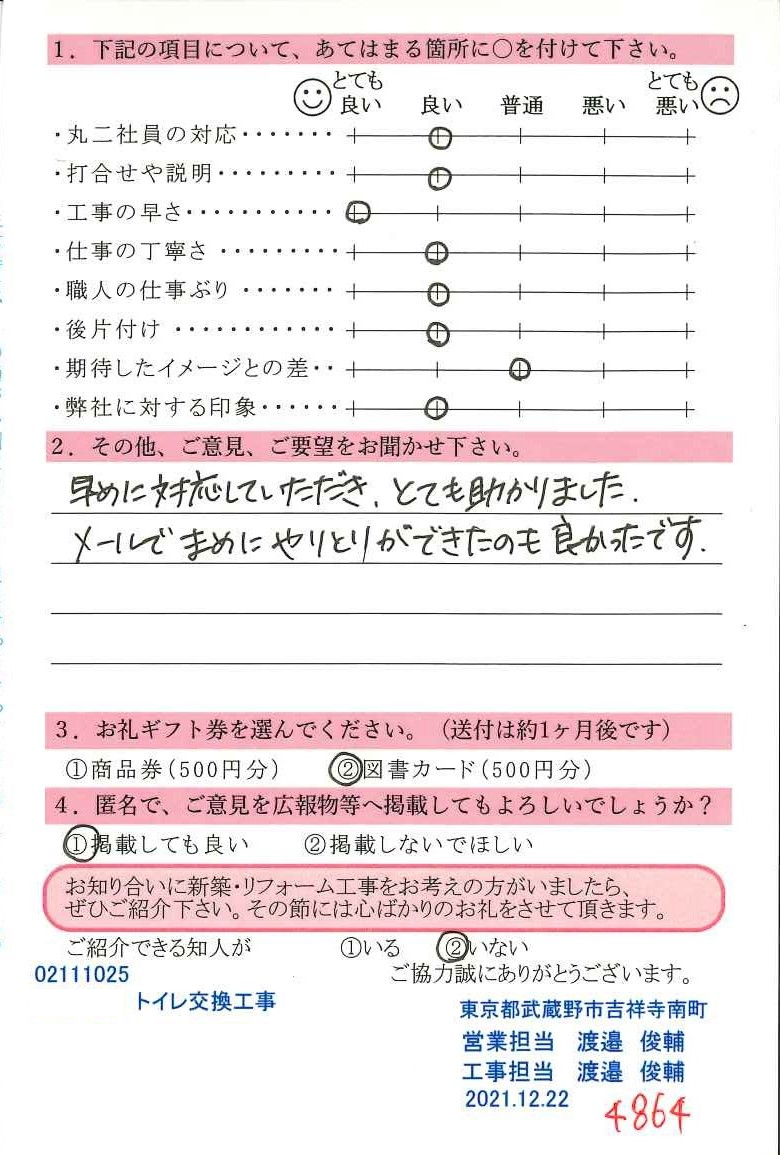 1．下記の項目について、あてはまる箇所に〇を付けて下さい。
とても良い 良い 普通 悪い とても悪い
・丸二社員の対応・・・・・・・
・打合せや説明・・・・・・・・・
・工事の早さ・・・・・・・・・・・
・仕事の丁寧さ ・・・・・・・・
・職人の仕事ぶり ・・・・・・・
・後片付け ・・・・・・・・・・・・
・期待したイメージとの差・・
・弊社に対する印象・・・・・・
2．その他、ご意見、ご要望をお聞かせ下さい。
早めに対応していただき、とても助かりました．
メールでまめにやりとりができたのも良かったです．
3．お礼ギフト券を選んでください。（送付は約1ヶ月後です）
①商品券（500円分） ②図書カード（500円分）
4．匿名で、ご意見を広報物等へ掲載してもよろしいでしょうか？
①掲載しても良い ②掲載しないでほしい
お知り合いに新築・リフォーム工事をお考えの方がいましたら、
ぜひご紹介下さい。その節には心ばかりのお礼をさせて頂きます。
ご紹介できる知人が ①いる ②いない
02111025 ご協力誠にありがとうございます。
トイレ交換工事
東京都武蔵野市吉祥寺南町
営業担当 渡邉 俊輔
工事担当 渡邉 俊輔
2021.12.22
4864